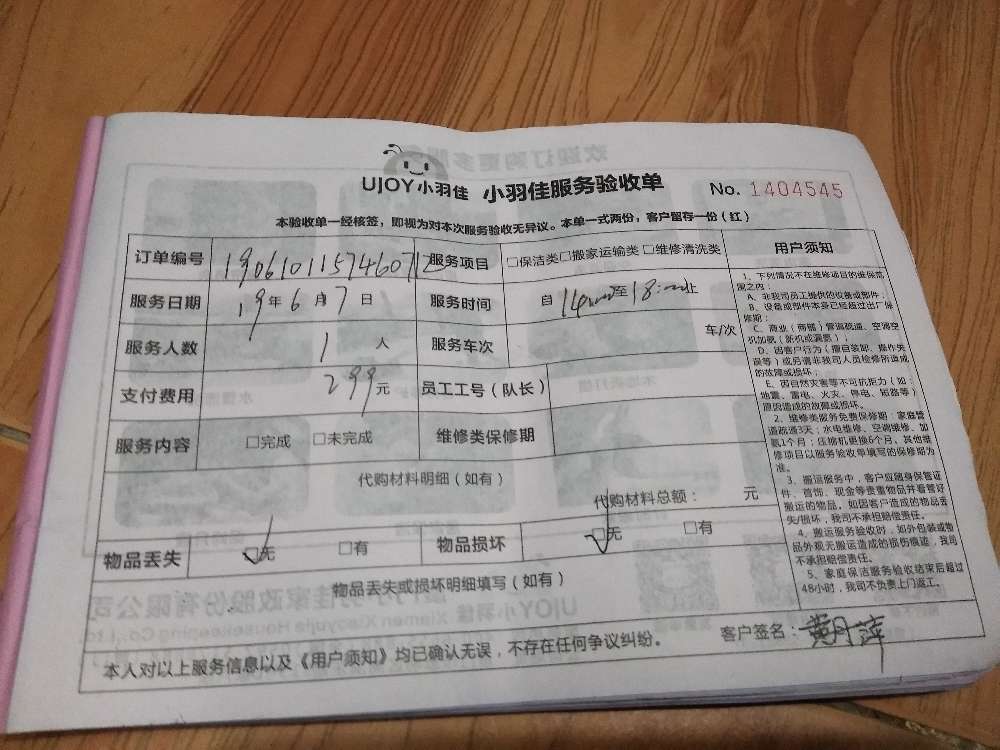 UJOY小羽佳 小羽佳服务验收单 No. 1404545
本验收单一经核签，即视为对本次服务验收无异议。本单一式两份，客户留存一份（红）
订单编号 服务项目 □保洁类□搬家运输类 □维修清洗类
服务日期 19年6月7日 服务时间 自14:00至18:00止
服务人数 1人 服务车次 车/次
支付费用 299元 员工工号（队长）
服务内容 □完成 □未完成 维修类保修期
代购材料明细（如有）
代购材料总额： 元
物品丢失 □无 □有 物品损坏 □无 □有
物品丢失或损坏明细填写（如有）
本人对以上服务信息以及《用户须知》均已确认无误，不存在任何争议纠纷。
客户签名：黄月萍
用户须知
1、下列情况不在维修项目的维保范
围之内：
A、非我司员工提供的设备或部件；
B、设备或部件本身已经超过出厂保
修期；
C、商业（商铺）管道疏通、空调空
机加氨（新机或漏氨）；
D、因客户行为（擅自装卸、操作失
误等）或另请非我司人员检修所造成
的故障或损坏；
E、因自然灾害等不可抗拒力（如：
地震、雷电、火灾、停电、短路等）
原因造成的故障或损坏。
2、维修类服务免费保修期：家庭管
道疏通3天；水电维修、空调维修、加
氨1个月；压缩机更换6个月。其他维
修项目以服务验收单填写的保修期为
准。
3、搬运服务中，客户应随身保管证
件、首饰、现金等贵重物品并看管好
搬运的物品。如因客户造成的物品丢
失/损坏，我司不承担赔偿责任。
4、搬运服务验收时，如外包装或物
品外观无搬运造成的损伤痕迹，我司
不承担赔偿责任。
5、家庭保洁服务验收结束后超过
48小时，我司不负责上门返工。